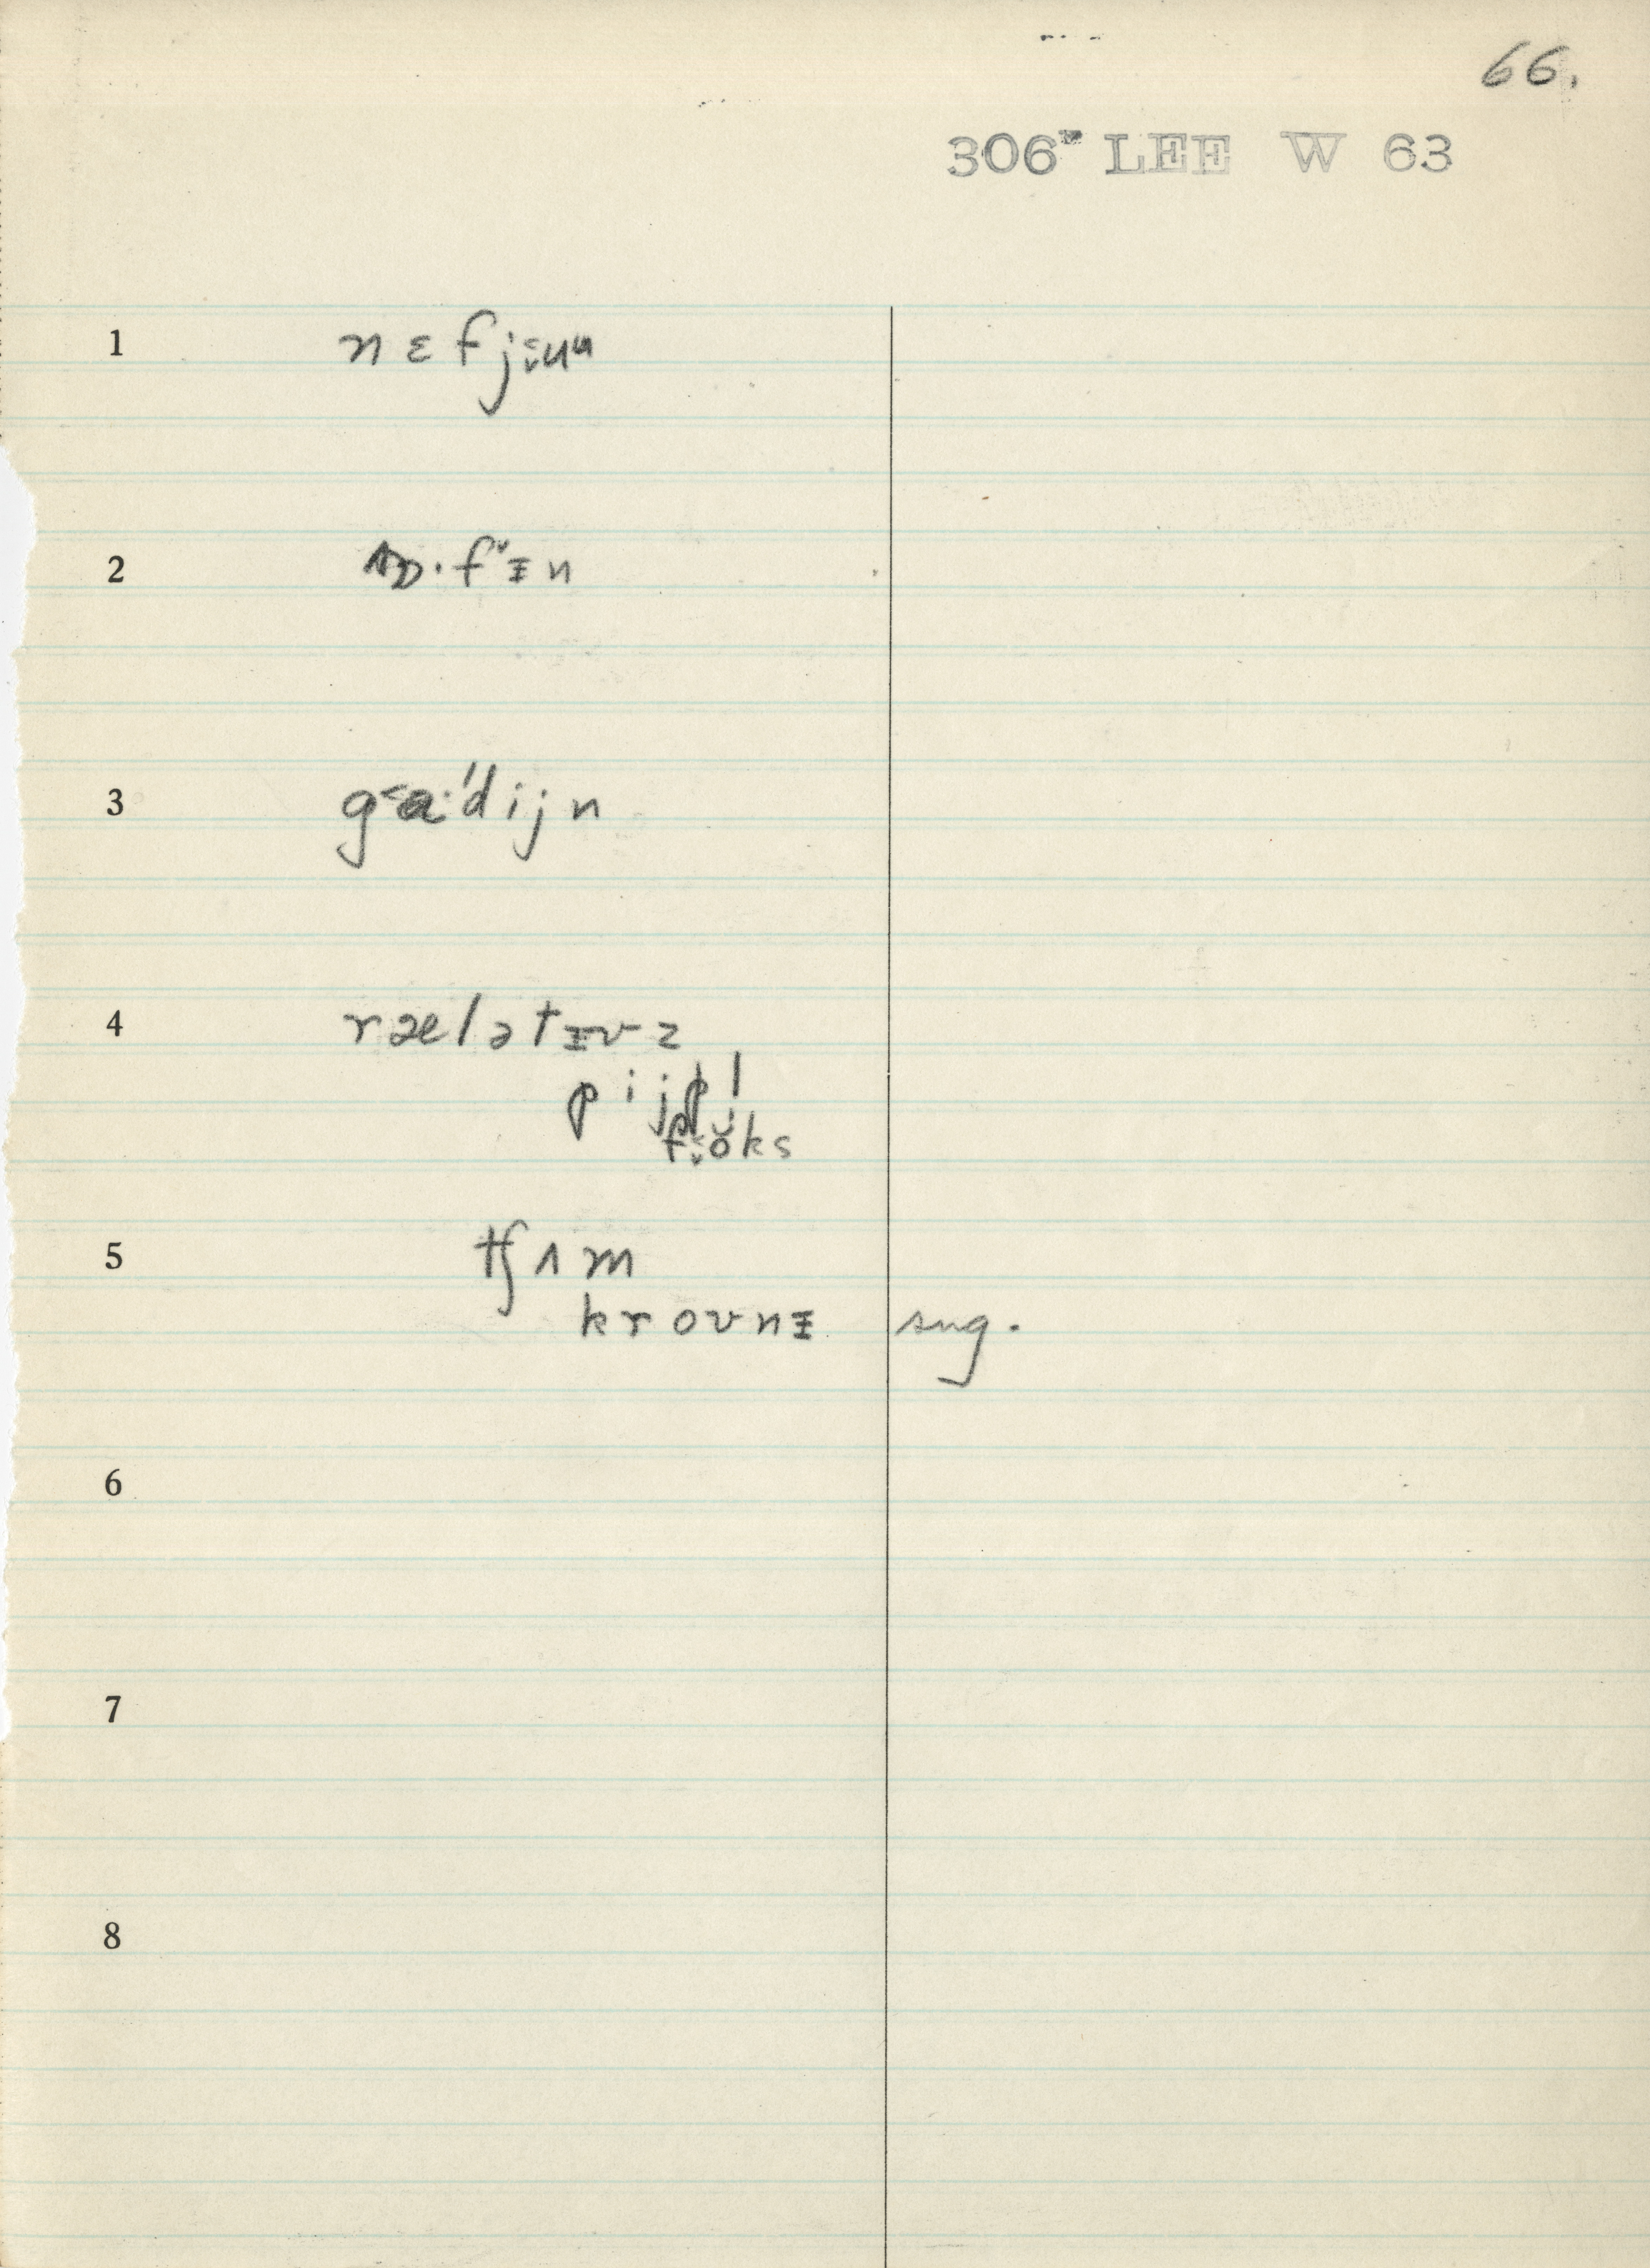 66.
306 LEE W 63
1 nɛfjᵾu
2 ɒ·fɪn
3 gɑ·'dijn
4 rælətɪvz
pijpl
foks
5 tʃʌm
krovnɪ sug.
6
7
8